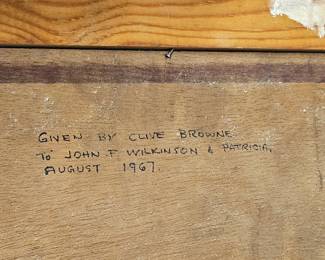 GIVEN BY CLIVE BROWNE
To JOHN F WILKINSON & PATRICIA,
AUGUST 1967.